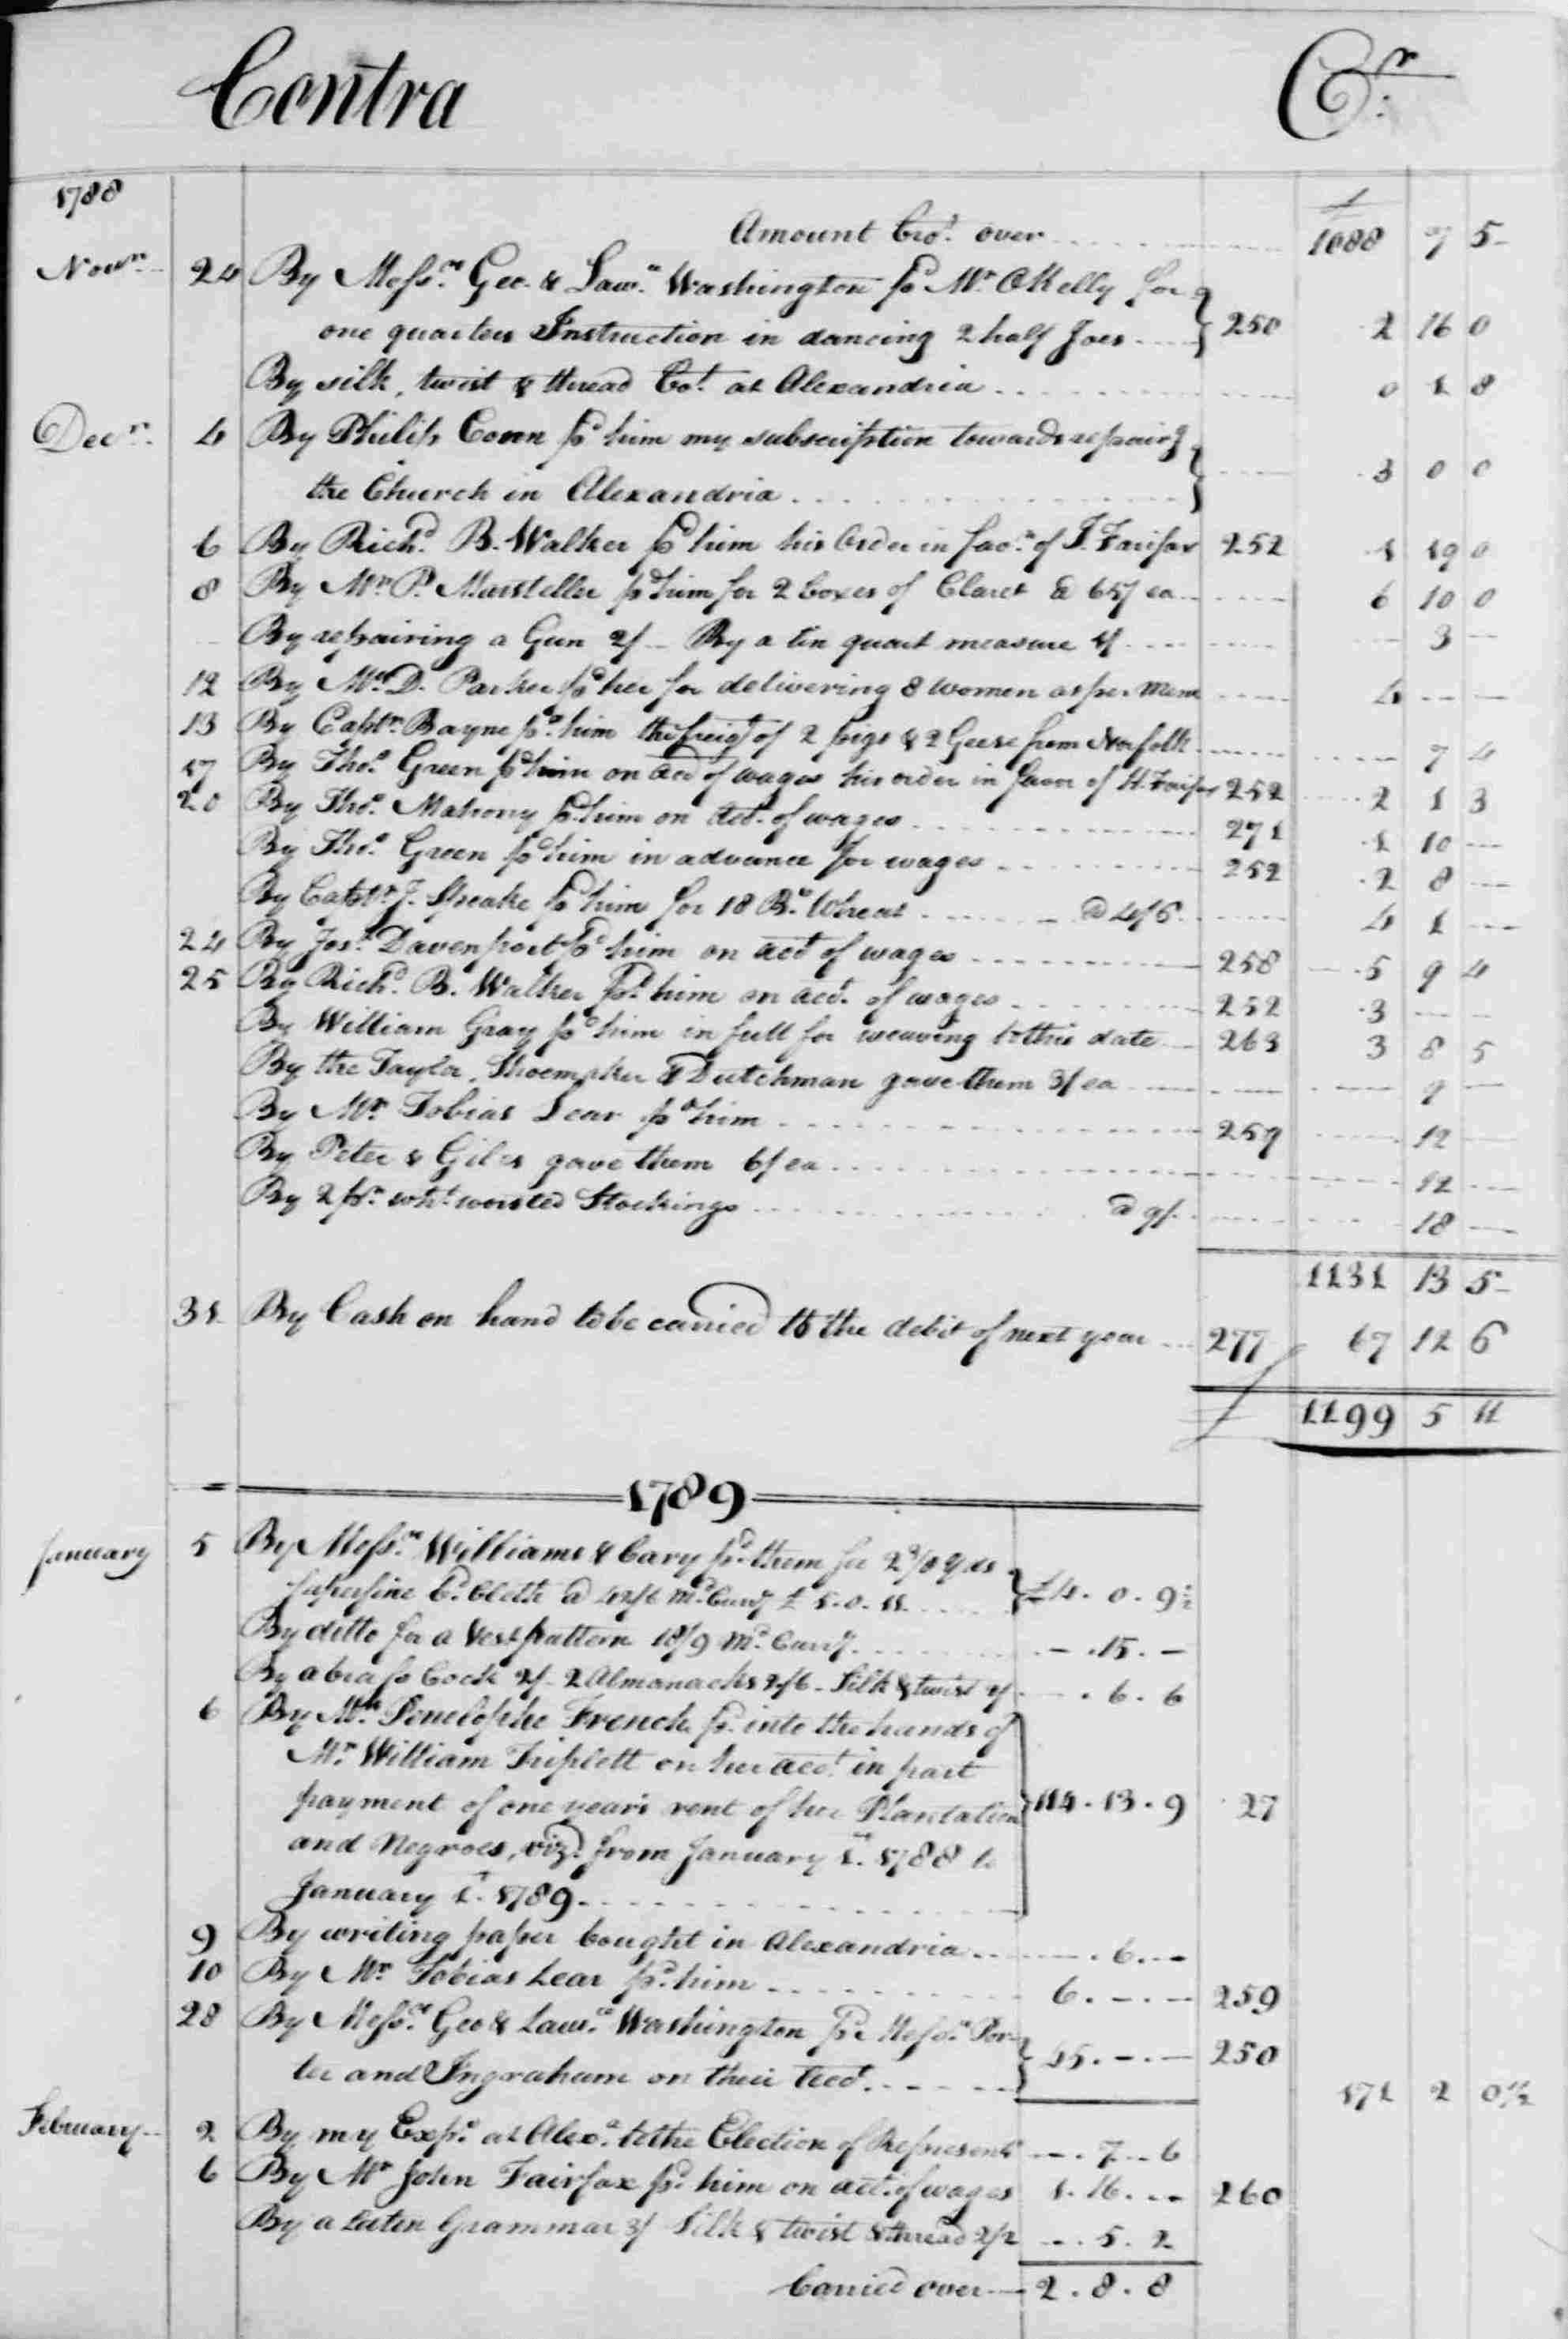 Contra Cr.
1788
Amount bro.t over 1088 7 5
Novr. 24 By Messrs. Geo. & Lawe. Washington pd Mr. OKelly for
one quarters Instruction in dancing 2 half Joes 250 2 16 0
By silk, twist & thread bot. at Alexandria 0 1 8
Decr. 4 By Philip Conn pd him my subscription towards repairg
the Church in Alexandria 3 0 0
6 By Richd. B. Walker pd him his order in favr. of J. Fairfax 252 1 19 0
8 By Mr. P. Marsteller pd him for 2 boxes of Claret @ 65/ ea 6 10 0
By repairing a Gun 2/ - By a tin quart measure 1/ 3 -
12 By Mrs D. Parker pd her for delivering 8 women as per Mem 4 - -
13 By Captn. Bayne pd. him the freigt of 2 pigs & 2 Geese from Norfolk 7 4
17 By Thos. Green pd him on acct of wages his order in favor of H. Fairfax 252 2 1 3
20 By Thos. Mahony pd. him on Act. of wages 271 1 10 -
By Thos. Green pd him in advance for wages 252 2 8 -
By Captn. J. Speake pd him for 18 Bs. Wheat @ 4/6 4 1 -
24 By Josh. Davenport pd him on acct of wages 258 5 9 4
25 By Richd. B. Walker pd. him on acct. of wages 252 3 - -
By William Gray pd him in full for weaving to this date 263 3 8 5
By the Taylor, Shoemaker & Dutchman gave them 3/ ea 9 -
By Mr. Tobias Lear pd him 259 12 -
By Peter & Giles gave them 6/ ea 12 -
By 2 pr. wht. worsted Stockings @ 9/. 18 -
1131 13 5
31 By Cash on hand to be carried to the debit of next year 277 67 12 6
1199 5 11
1789
January 5 By Messrs. Williams & Cary pd. them for 2 3/8 yds
superfine bd. Cloth @ 42/6 Md. Curry £ 5.0.11 £4.0.9½
By ditto for a Vest pattern 18/9 Md. Curry - .15. -
By a brass Cock 2/- 2 Almanacks 2/6 - Silk & twist 2/ - .6.6
6 By Mrs. Penelophe French pd. into the hands of
Mr. William Triplett on her acct. in part
payment of one year's rent of her Plantation 114.13.9 27
and Negroes, vizd. from January 1st. 1788 to
January 1st. 1789
9 By writing paper bought in Alexandria - .6. -
10 By Mr. Tobias Lear pd. him 6. - . - 259
28 By Messrs. Geo & Lawe. Washington pd. Messrs. Por-
ter and Ingraham on their Acct. 45. - . - 250
171 2 0½
February 2 By my Exps. at Alexa. to the Election of Represents - .7.6
6 By Mr John Fairfax pd. him on act. of wages 1.16. - 260
By a Laten Grammar 3/ Silk & twist & thread 2/2 - .5.2
Carried over 2.8.8